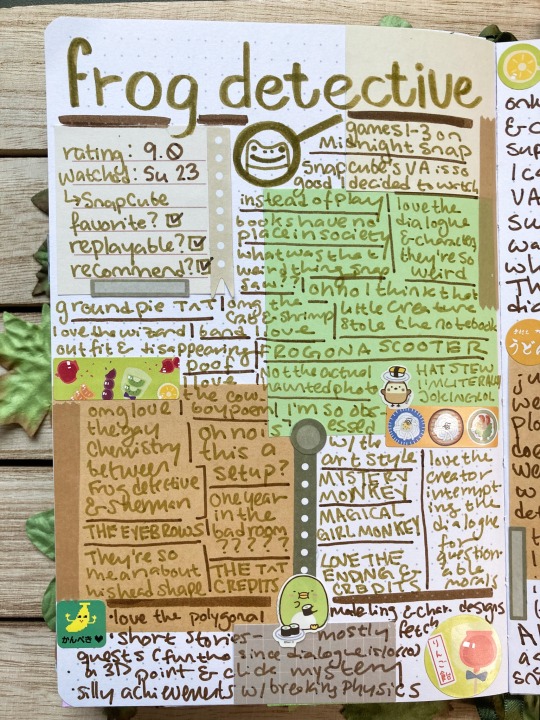 frog detective
rating: 9.0
watched: Su 23
↳SnapCube
favorite? ☑
replayable? ☑
recommend? ☑
games 1-3 on
Midnight Snap
Snapcube's VA is so
good I decided to watch
instead of play
books have no
place in society
what was that
weird thing snap
saw?
love the
dialogue
& characters
they're so
weird
ground pie TnT
omg
the
crab & shrimp
oh no I think that
little creature
stole the notebook
love the wizard
outfit & disappearing
poof
band
I love
FROG ON A SCOOTER
I love
the cow
boy poem
Not the actual
haunted photo
HAT STEW
I'M LITERALLY
JOKING LOL
I'm so obs-
sessed
w/ the
art style
omg love
the guy
chemistry
between
frog detective
& sherman
oh no is
this a
setup?
THE EYEBROWS
one year
in the
bad room
? ? ? ? ?
They're so
mean about
his head shape
THE TnT
CREDITS
MYSTERY
MONKEY
MAGICAL
GIRL MONKEY
LOVE THE
ENDING &
CREDITS
love the
creator
interrupt-
ing the
dialogue
for
question-
able
morals
かんぺき
• love the polygonal modeling & char. designs
• short stories - mostly fetch
quests (fun tho since dialogue is
in 3D point & click mystery
• silly achievements w/ breaking physics
りんご飴
うどん